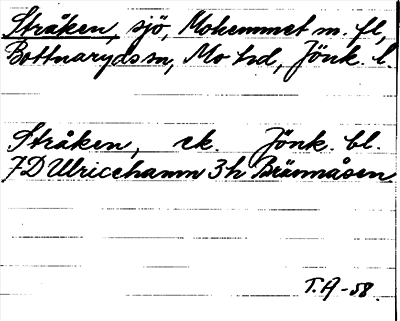 Stråken, sjö, Mohemmet m. fl,
Bottnaryds sn, Mo hd, Jönk. l.
Stråken, ek. Jönk. bl.
7D Ulricehamn 3h Brännåsen
T.A-58.